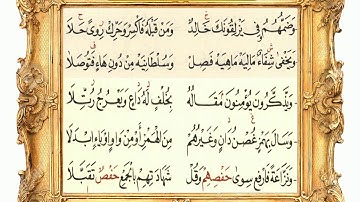 وَضَمُّهُمْ فِي يَزْلِقُونَكَ خَالِدٌ وَمَنْ قَبْلَهُ فَاكْسِرْ وَحَرِّكْ رِوًى حَلَا
وَيَخْفَى شِفَاءً مَالِيَهْ مَاهِيَهْ فَصِلْ وَسُلْطَانِيَهْ مِنْ دُونِ هَاءٍ فَتُوصَلَا
وَيَذَّكَّرُونَ يُؤْمِنُونَ مَقَالُهُ بِخُلْفٍ لَهُ دَاعٍ وَيَعْرُجُ رُتِّلَا
وَسَالَ بِهَمْزٍ غُصْنُ دَانٍ وَغَيْرُهُمْ مِنَ الْهَمْزِ أَوْ مِنْ وَاوٍ اوْ يَاءٍ ابْدَلَا
وَنَزَّاعَةً فَارْفَعْ سِوَى حَفْصِهِمْ وَقُلْ شَهَادَاتِهِمْ بِالْجَمْعِ حَفْصٌ تَقَبَّلَا